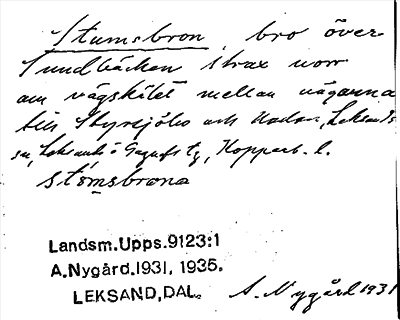 Stumsbron, bro över
Sundbäcken strax norr
om vägskälet mellan vägarna
till Styrsjöbo och Hedar, Leksands
sn, Leksands o Gagnefs tg, Kopparb. l.
stömsbrona
Landsm.Upps.9123:1
A.Nygård.1931, 1935.
LEKSAND,DAL.
A. Nygård 1931